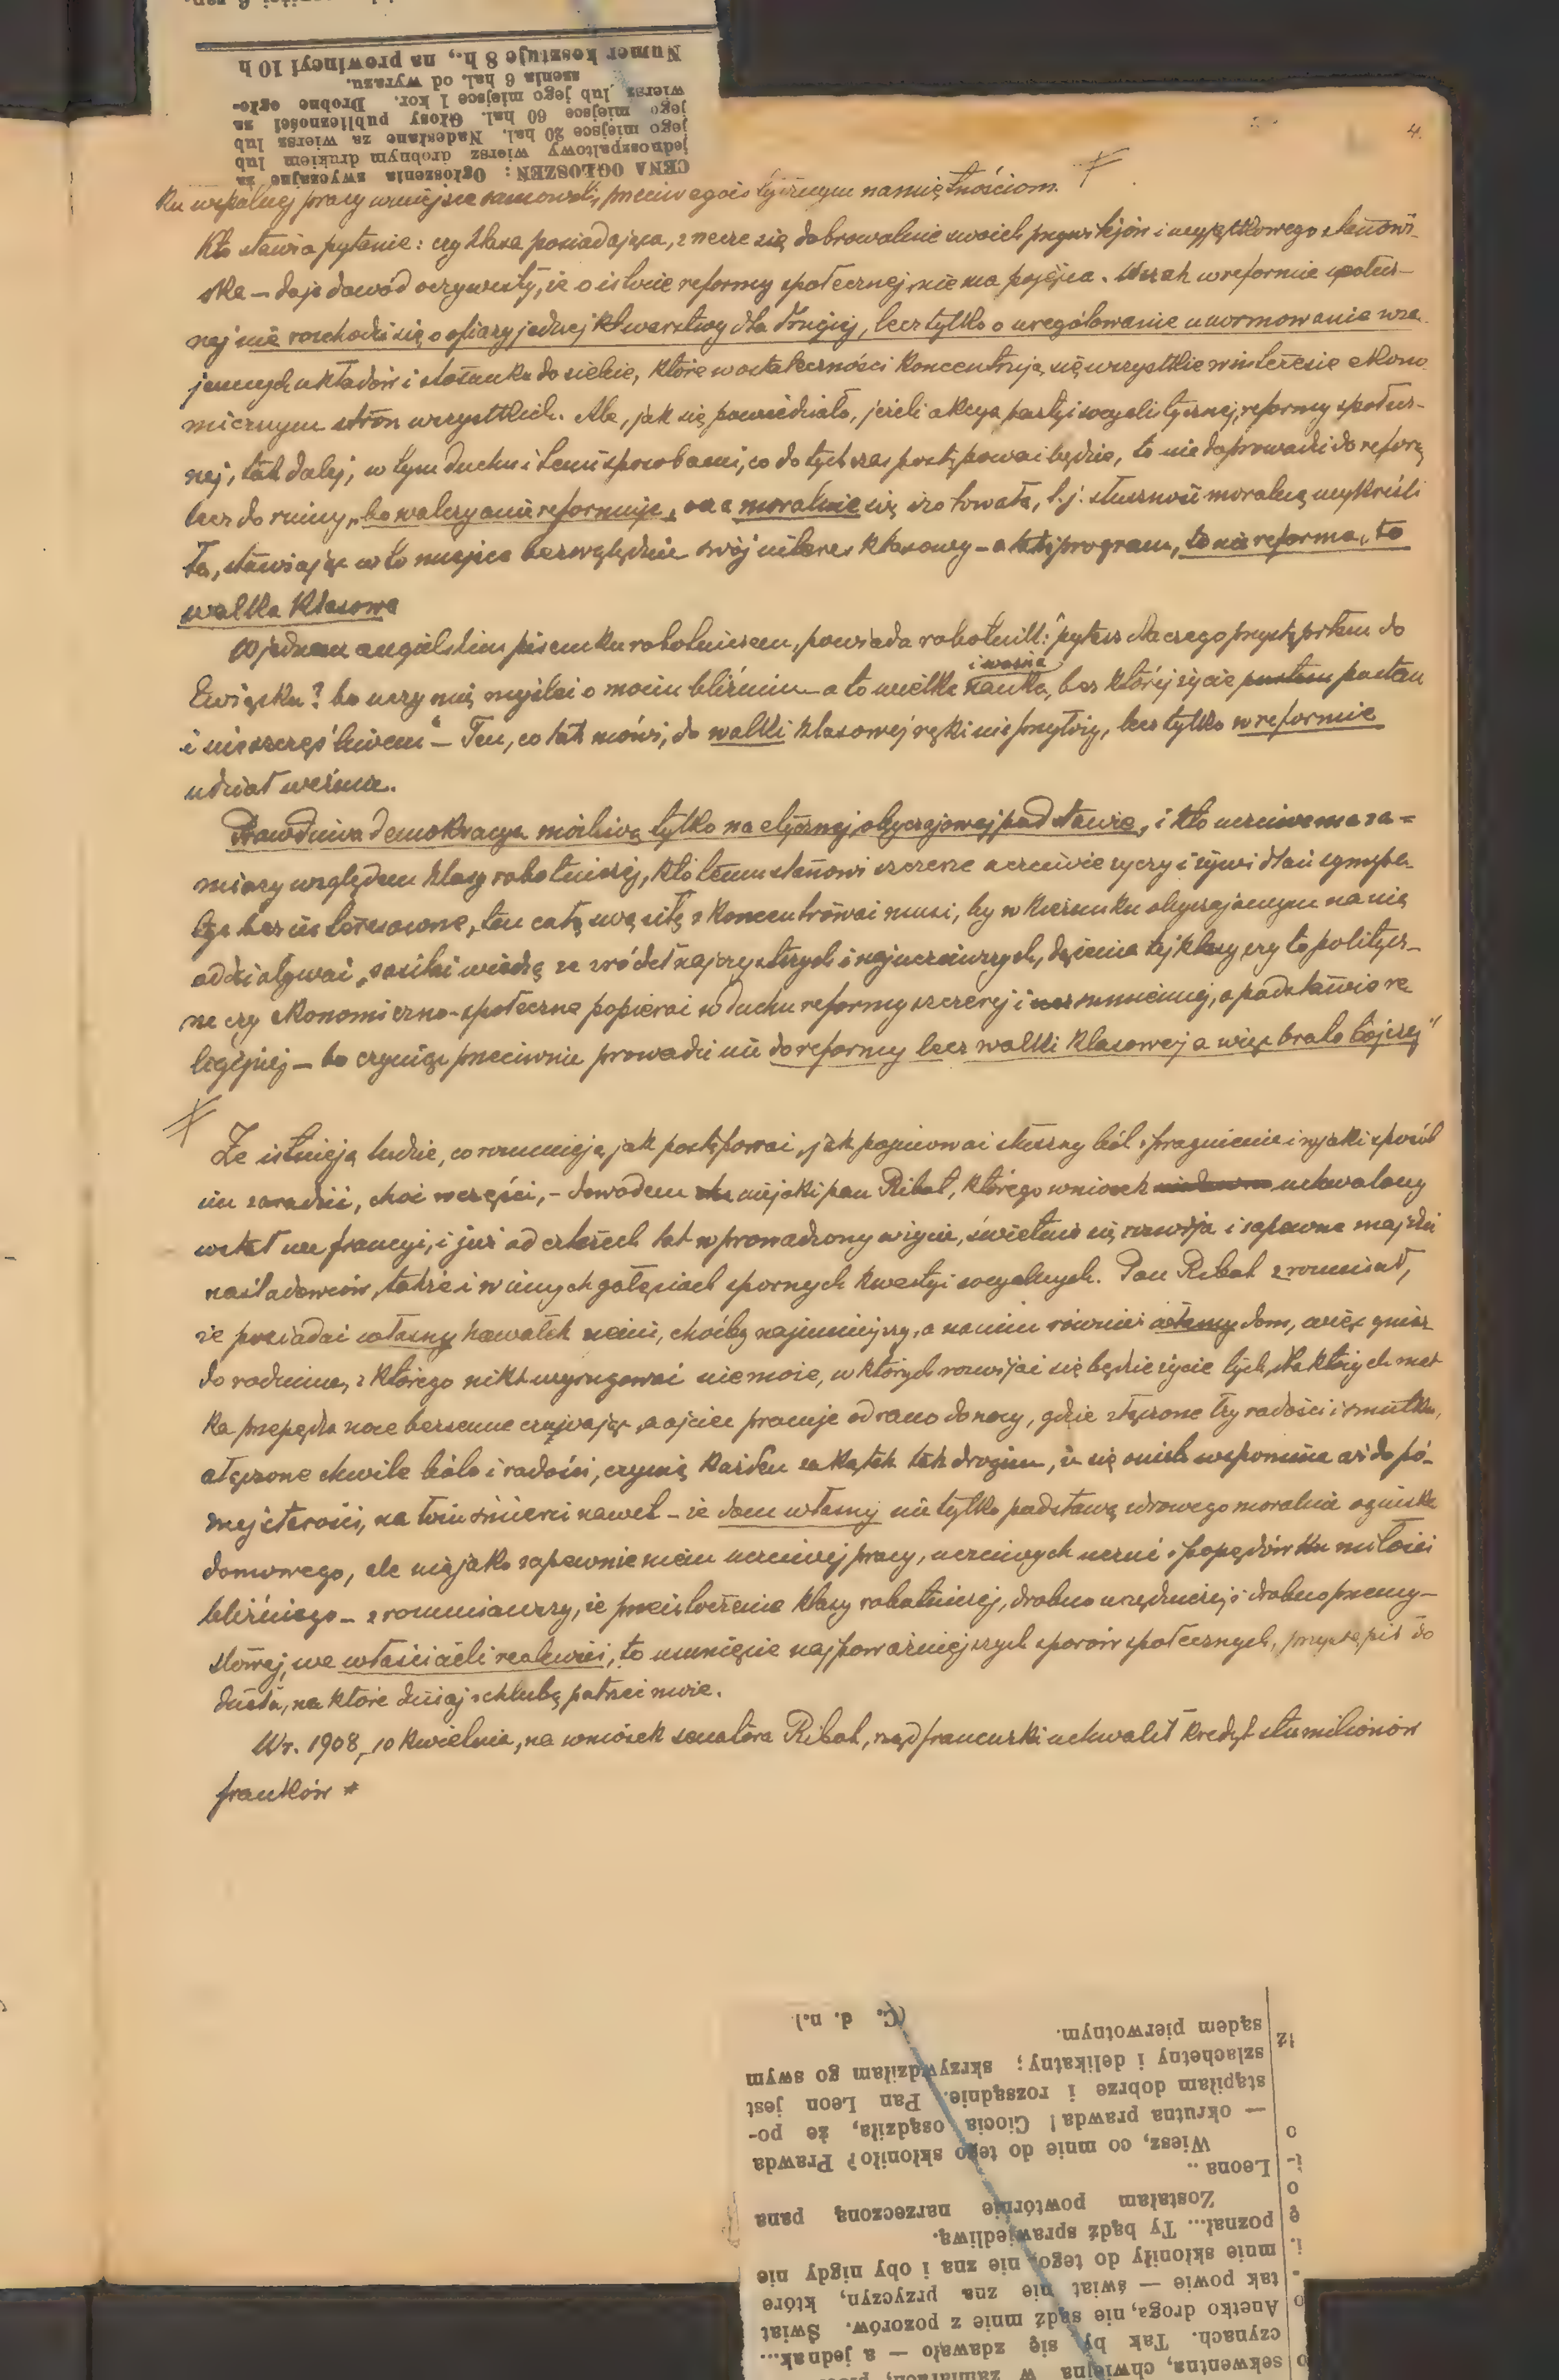 Numer kosztuje 8 h., na prowincyi 10 h
szenia 6 hal. od wyrazu.
wiersz lub jego miejsce 1 kor. Drobne ogło-
jego miejsce 60 hal. Głosy publiczności za
jego miejsce 20 hal. Nadesłane za wiersz lub
jednoszpaltowy wiersz drobnym drukiem lub
CENA OGŁOSZEŃ: Ogłoszenia zwyczajne za
4.
ku wspólnej pracy w miejsce samowoli, przeciw egoistycznym namiętnościom.
Kto stawia pytanie: czy klasa posiadająca, zrzecze się dobrowolnie swoich przywilejów i wyjątkowego stanowi-
ska – daje dowód oczywisty, że o istocie reformy społecznej nie ma pojęcia. Wszak w reformie społecz-
nej nie rozchodzi się o ofiary jednej warstwy dla drugiej, lecz tylko o uregulowanie unormowanie wza
jemnych układów i stosunku do siebie, które w ostateczności koncentrują się wszystkie w interesie ekono
micznym stron wszystkich. Ale, jak się powiedziało, jeżeli akcya partyi socyalistycznej, reformy społecz-
nej, tak dalej, w tym duchu i temi sposobami, co dotychczas postępować będzie, to nie doprowadzi do reformy
lecz do ruiny, bo walczy a nie reformuje, ona moralnie się izolowała, t.j. słuszność moralną wykreśli
ła, stawiając w to miejsce bezwzględnie swój interes klasowy – a taki program, to nie reforma, to
walka klasowa
W jednem angielskim pisemku robotniczem, powiada robotnik: "pytasz dlaczego przystąpiłem do
Związku? bo uczy mię myśleć o moim bliźnim – a to wielka i ważna nauka, bez której życie pustem
i nieszczęśliwem" – Ten, co tak mówi, do walki klasowej ręki nie przyłoży, lecz tylko w reformie
udział weźmie.
Prawdziwa demokracya możliwą tylko na etycznej, obyczajowej podstawie, i kto uczciwe ma za=
miary względem klasy robotniczej, kto temu stanowi szczerze a uczciwie życzy i żywi dlań sympa-
tye bezinteresowne, ten całą swą siłę skoncentrować musi, by w kierunku obyczajowym na nią
oddziaływać, zasilać wiedzę ze źródeł najczystszych i najuczciwszych, dążenia tej klasy czy to politycz-
ne czy ekonomiczno-społeczne popierać w duchu reformy szczerej i sumiennej, o podstawie re
ligijnej – bo czyniąc przeciwnie prowadzi nie do reformy lecz walki klasowej a więc bratobójczej"
Że istnieją ludzie, co rozumieją jak postępować, jak pojmować słuszny ból i pragnienie i w jaki sposób
im zaradzić, choć w części, – dowodem niejaki pan Ribot, którego wniosek uchwalony
został we francyi, i już od czterech lat wprowadzony w życie, świetnie się rozwija i zapewne znajdzie
naśladowców, także i w innych gałęziach spornych kwestyi socyalnych. Pan Ribot zrozumiał,
że posiadać własny kawałek ziemi, choćby najmniejszy, a na nim również własny dom, więc gniaz
do rodzinne, z którego nikt wyrugować nie może, w których rozwijać się będzie życie tych, dla których mat
ka przepędza noce bezsenne czuwając, a ojciec pracuje od rana do nocy, gdzie złączone łzy radości i smutku,
złączone chwile bólu i radości, czynią każden zakątek tak drogim, że się onich wspomina aż do pó-
źnej starości, na łożu śmierci nawet – że dom własny nie tylko podstawą zdrowego moralnie ogniska
domowego, ale niejako zapewnieniem uczciwej pracy, uczciwych uczuć i popędów ku miłości
bliźniego – zrozumiawszy, że przeistoczenie klasy robotniczej, drobno urzędniczej i drobno przemy-
słowej, we właścicieli realności, to usunięcie najpoważniejszych sporów społecznych, przystąpił do
dzieła, na które dzisiaj z chlubą patrzeć może.
W r. 1908, 10 kwietnia, na wniosek senatora Ribot, rząd francuski uchwalił kredyt stu milionów
franków *
sekwentna, chwiejna w zamiarach,
czynach. Tak by się zdawało — a jednak...
Anetko droga, nie sądź mnie z pozorów. Świat
tak powie — świat nie zna przyczyn, które
mnie skłoniły do tego, nie zna i oby nigdy nie
poznał... Ty bądź sprawiedliwą.
Zostałam powtórnie narzeczoną pana
Leona ..
Wiesz, co mnie do tego skłoniło? Prawda
— okrutna prawda! Ciocia osądziła, że po-
stąpiłam dobrze i rozsądnie. Pan Leon jest
szlachetny i delikatny; skrzywdziłam go swym
sądem pierwotnym.
(C. d. n.)